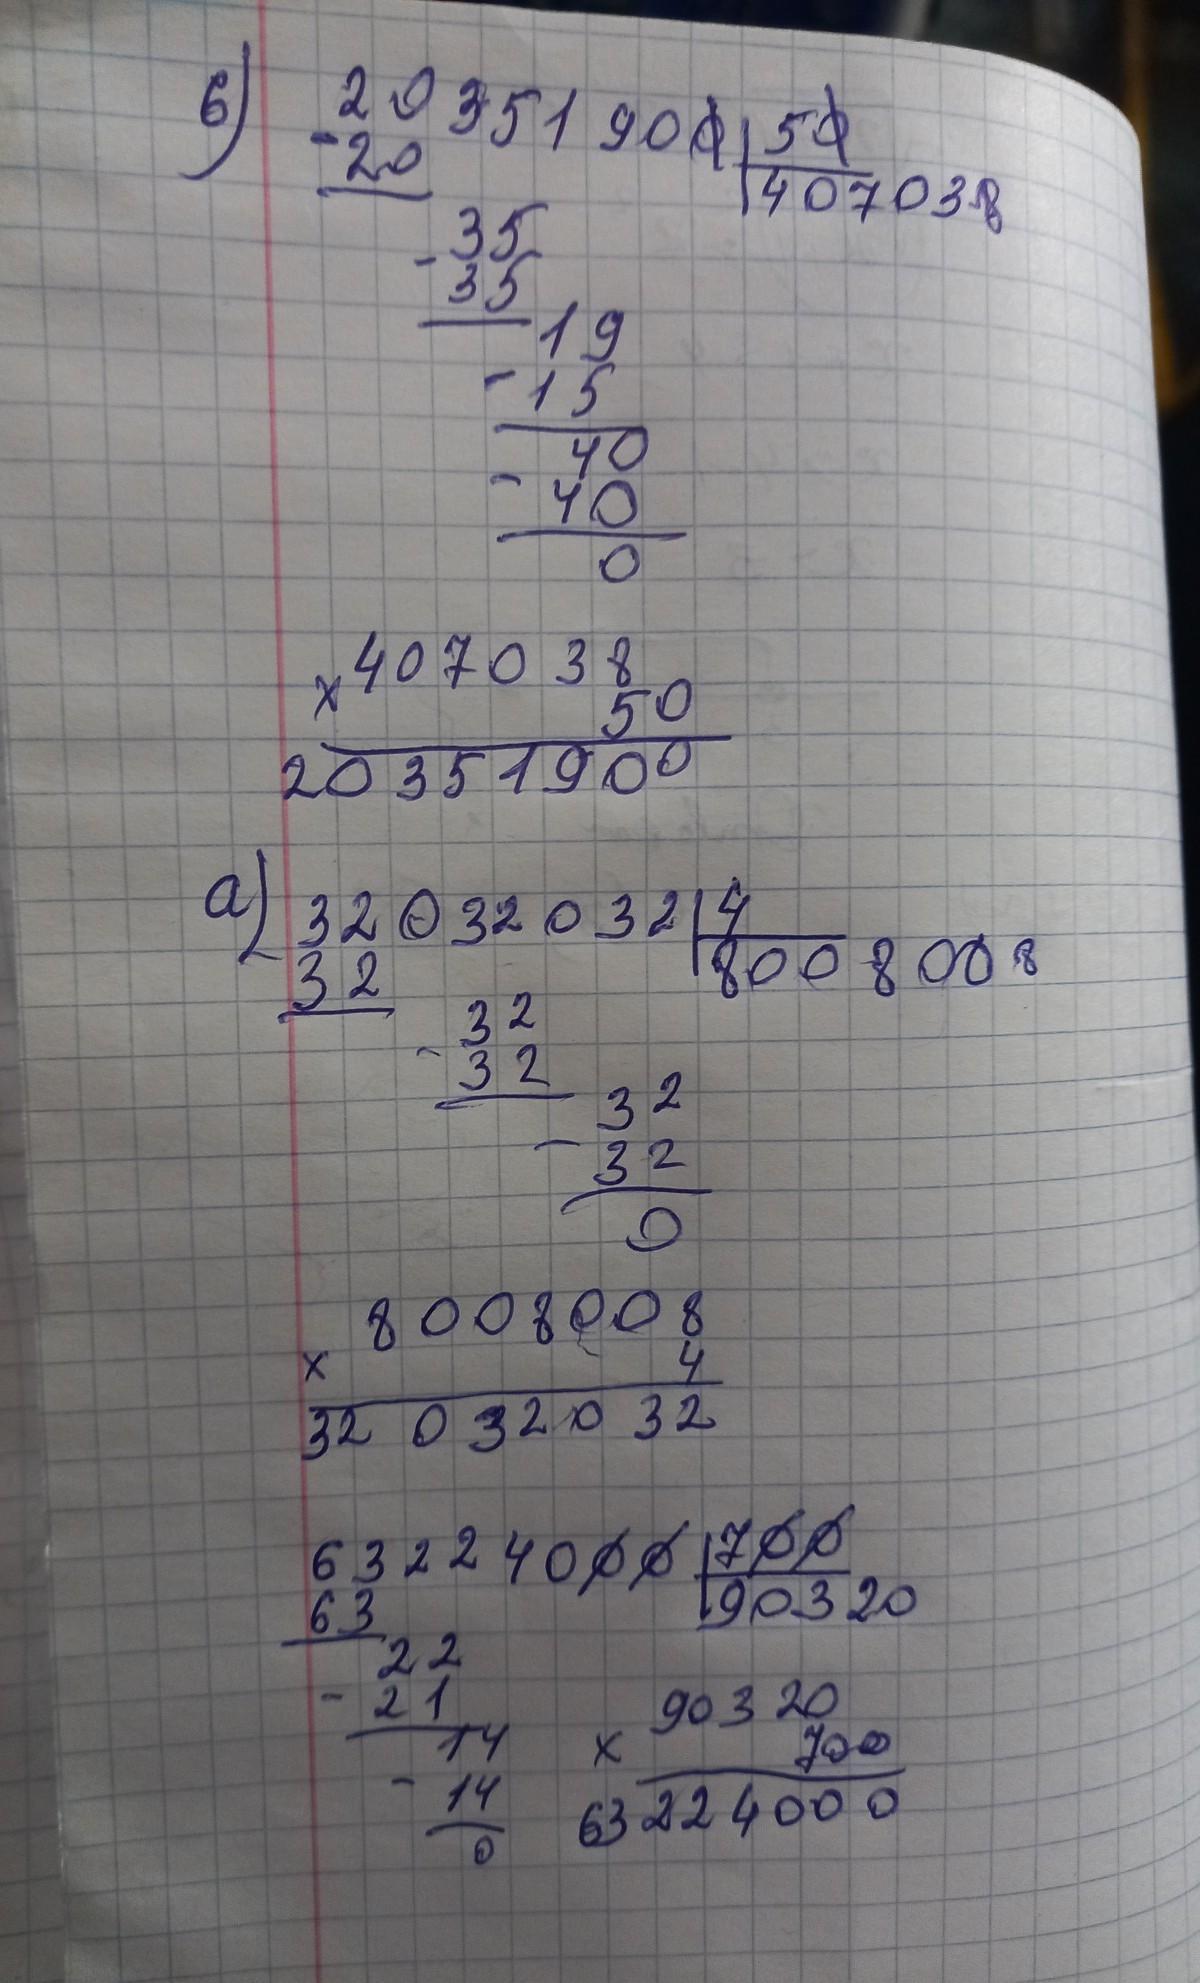 б) 20351900 | 50
- 20 407038
- 35
35
19
- 15
40
- 40
0
407038
× 50
20351900
а) 32032032 | 4
32 8008008
32
- 32
32
- 32
0
8008008
× 4
32032032
63224000 | 700
63 90320
22
- 21
14
- 14
0
90320
× 700
63224000